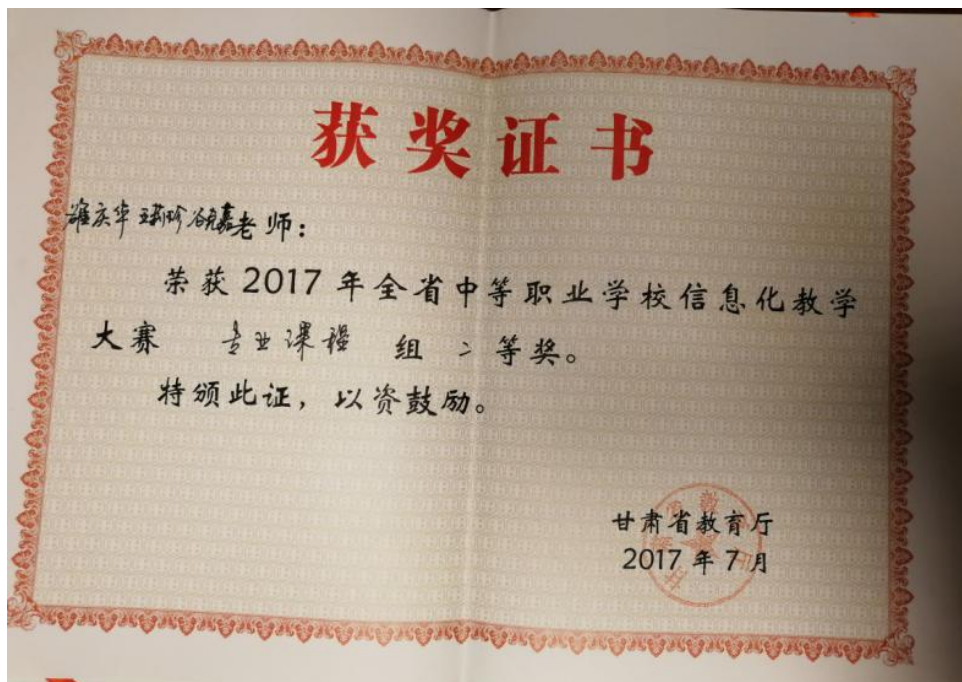 获奖证书
雒庆华 老师：
荣获2017年全省中等职业学校信息化教学
大赛 专业课程 组 二等奖。
特颁此证，以资鼓励。
甘肃省教育厅
2017年7月